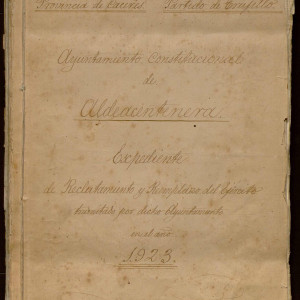 Provincia de Cáceres. Partido de Trujillo.
Ayuntamiento Constitucional
de
Aldeacentenera.
Expediente
de Reclutamiento y Reemplazo del Ejército
tramitado por dicho Ayuntamiento
en el año
1923.